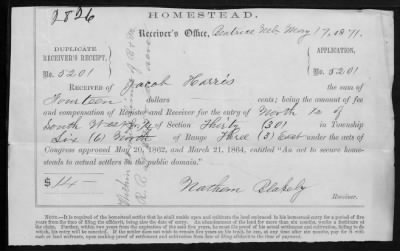 2826
HOMESTEAD.
Receiver's Office, Beatrice Neb May 17, 1871.
DUPLICATE
RECEIVER'S RECEIPT,
No. 5201
APPLICATION,
No. 5201
RECEIVED OF Jacob Harris the sum
of Fourteen dollars cents; being the amount of fee
and compensation of Register and Receiver for the entry of North ½ of
South West ¼ of Section Thirty (30) in Township
Six (6) North of Range Three (3) East under the acts of
Congress approved May 20, 1862, and March 21, 1864, entitled "An act to secure home-
steads to actual settlers on the public domain."
$14
Nathan Blakely
Receiver.
NOTE.—It is required of the homestead settler that he shall reside upon and cultivate the land embraced in his homestead entry for a period of five
years from the time of filing the affidavit, being also the date of entry. An abandonment of the land for more than six months, works a forfeiture of
the claim. Further, within two years from the expiration of the said five years, he must file proof of his actual settlement and cultivation, failing to do
which, his entry will be cancelled. If the settler does not wish to remain five years on his tract, he can, at any time after six months, pay for it with
cash or land warrants, upon making proof of settlement and cultivation from date of filing affidavit to the time of payment.